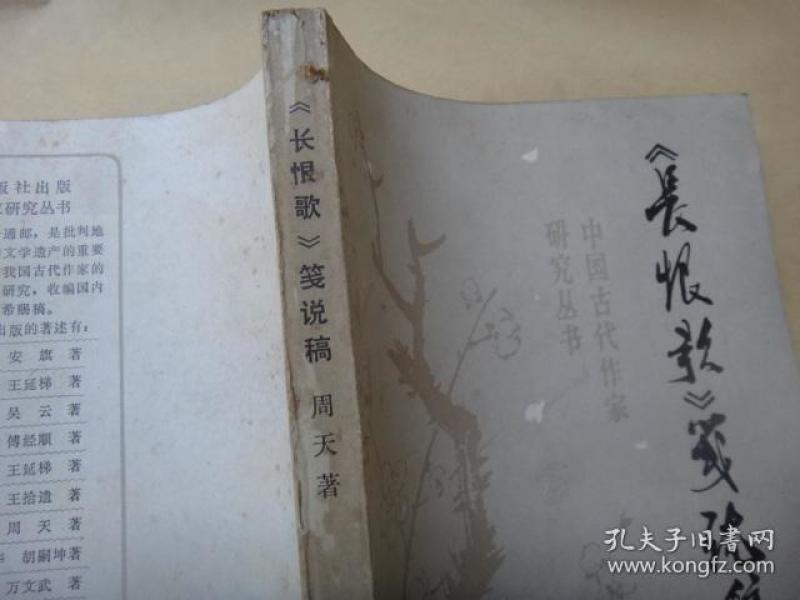 版社出版
研究丛书
通邮，是批判地
文学遗产的重要
我国古代作家的
研究，收编国内
希赐稿。
出版的著述有：
安旗 著
王延梯 著
吴云 著
傅经顺 著
王延梯 著
王拾遗 著
周天 著
胡嗣坤 著
万文武 著
《长恨歌》笺说稿 周天著
中国古代作家
研究丛书
《長恨歌》箋說稿
孔夫子旧书网
www.kongfz.com